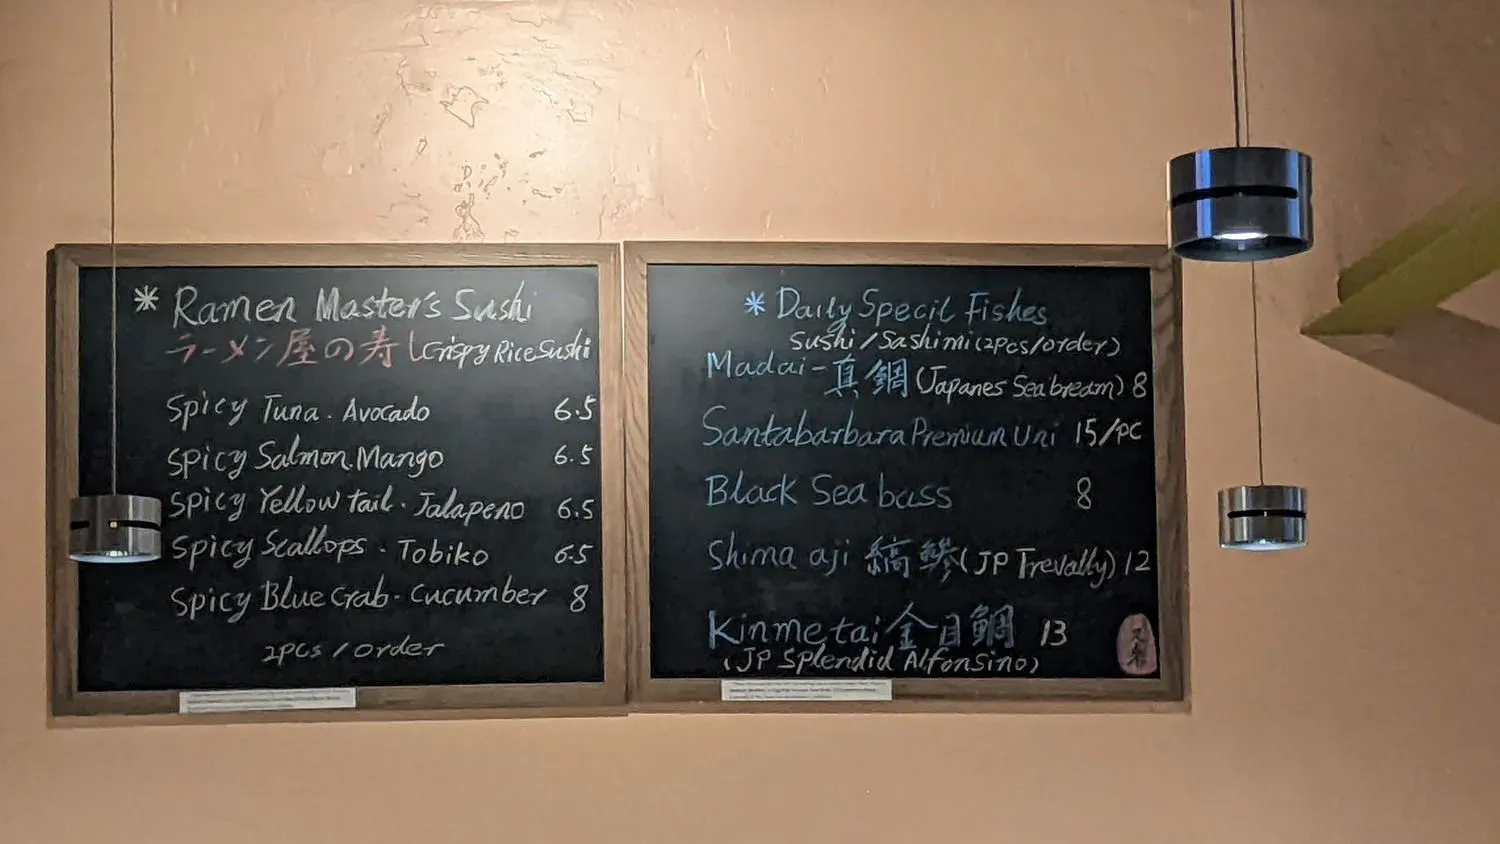 * Ramen Master's Sushi
ラーメン屋の寿し Crispy Rice Sushi
Spicy Tuna . Avocado 6.5
Spicy Salmon. Mango 6.5
Spicy Yellow tail . Jalapeno 6.5
Spicy Scallops . Tobiko 6.5
Spicy Blue Crab . Cucumber 8
2pcs / order
* Daily Specil Fishes
Sushi / Sashimi (2pcs/order)
Madai - 真鯛 (Japanes Sea bream) 8
Santabarbara Premium Uni 15/pc
Black Sea bass 8
Shima aji 縞鯵 (JP Trevally) 12
Kinmetai 金目鯛 13
(JP Splendid Alfonsino)